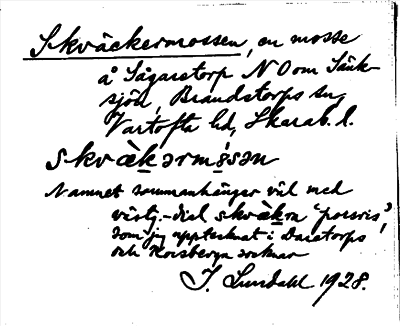 Skväckermossen, en mosse
å Sågaretorp NO om Sänk-
sjön, Brandstorps sn,
Vartofta hd, Skarab. l.
skvæ̀kərmósən
Namnet sammanhänger väl med
västg.-dial skvækrn 'porsris',
som jag upptecknat i Daretorps
och Korsberga socknar
J. Lundahl 1928.